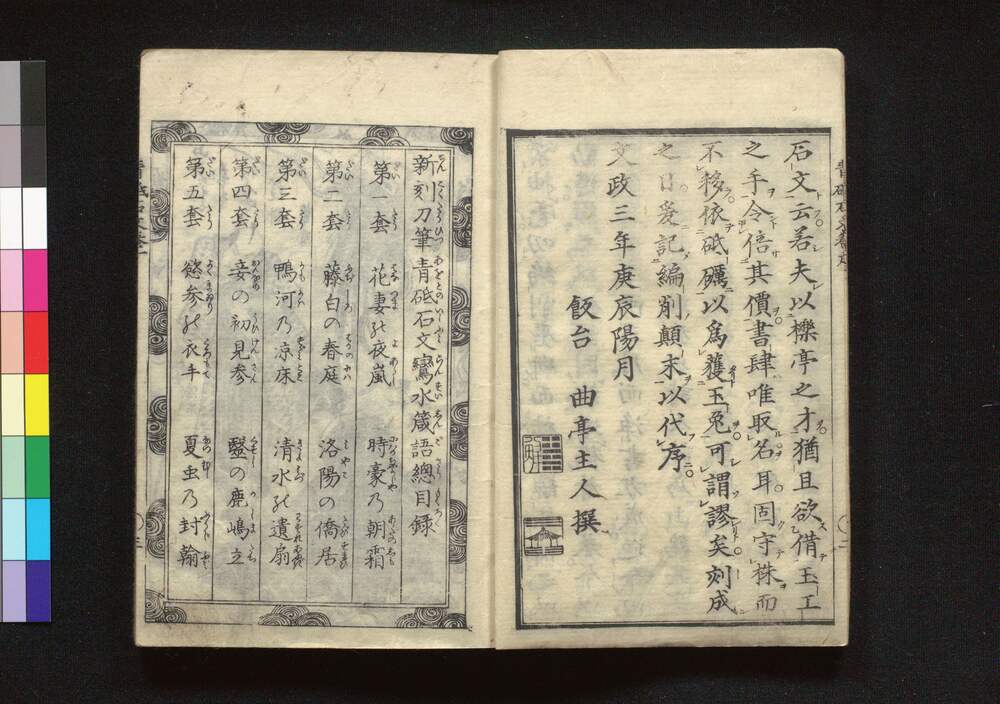 石文云若夫以櫟亭之才猶且欲借玉工
之手令倍其價書肆唯取名耳固守株而
不移依砥礪以為獲玉兔可謂謬矣刻成
之日爰記編削顛末以代序
文政三年庚辰陽月
飯台 曲亭主人撰
新刻刀筆青砥石文鸞水箴語總目録
第一套 花妻の夜嵐 時豪乃朝霜
第二套 藤白の春庭 洛陽の僑居
第三套 鴨河乃涼床 清水の遺扇
第四套 妾の初見参 毉の鹿嶋立
第五套 慾参の衣手 夏虫乃封翰